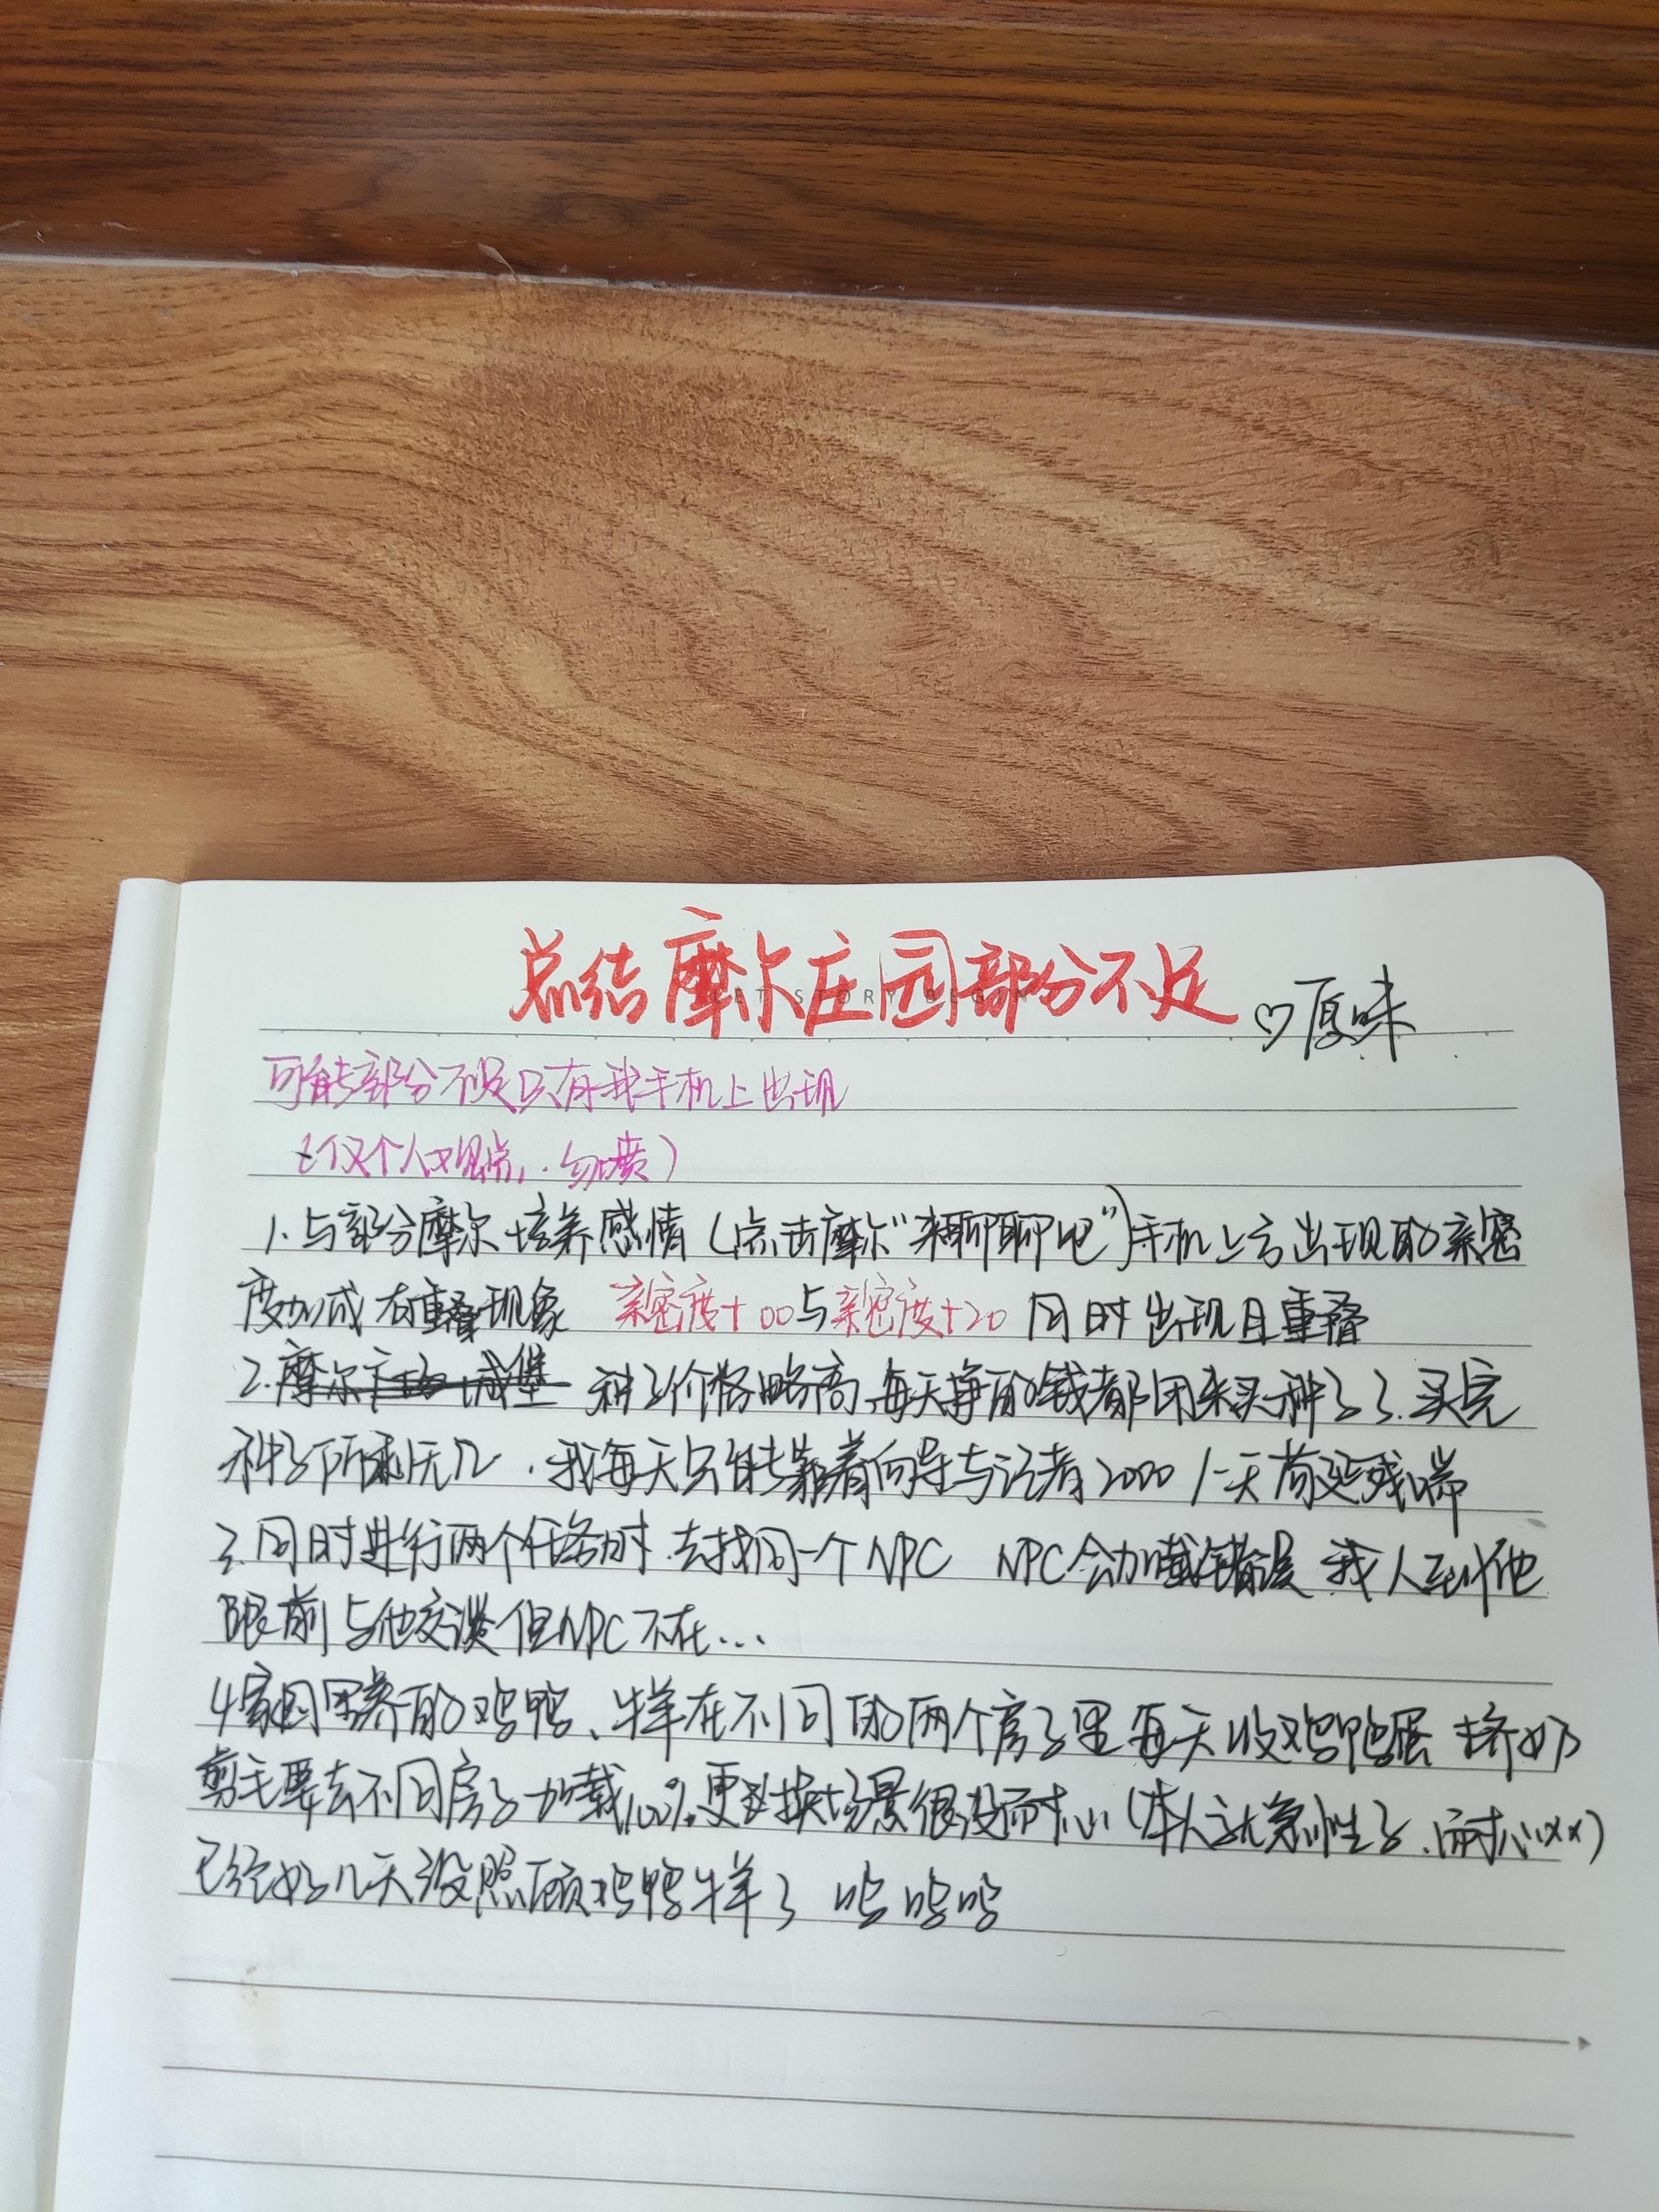 总结摩尔庄园部分不足
LET STORY BEGIN
♡原味
可能部分不足只有我手机上出现
(仅个人观点,勿喷)
1.与部分摩尔培养感情(点击摩尔"来聊聊吧")手机上方出现的亲密
度加成有重叠现象 亲密度+00与亲密度+20 同时出现且重叠
2.摩尔 种子价格略高,每天挣的钱都用来买种子了.买完
种子所剩无几.我每天只能靠着向导与记者2000/一天苟延残喘
3.同时进行两个任务时.去找同一个NPC NPC会加载错误 我人到他
眼前与他交谈但NPC不在...
4.家园里养的鸡鸭、牛羊在不同的两个房子里每天收鸡鸭蛋 挤奶
剪毛要去不同房子加载100%更换场景很没耐心(本人就急性子.耐心××)
已经好几天没照顾鸡鸭牛羊了 呜呜呜